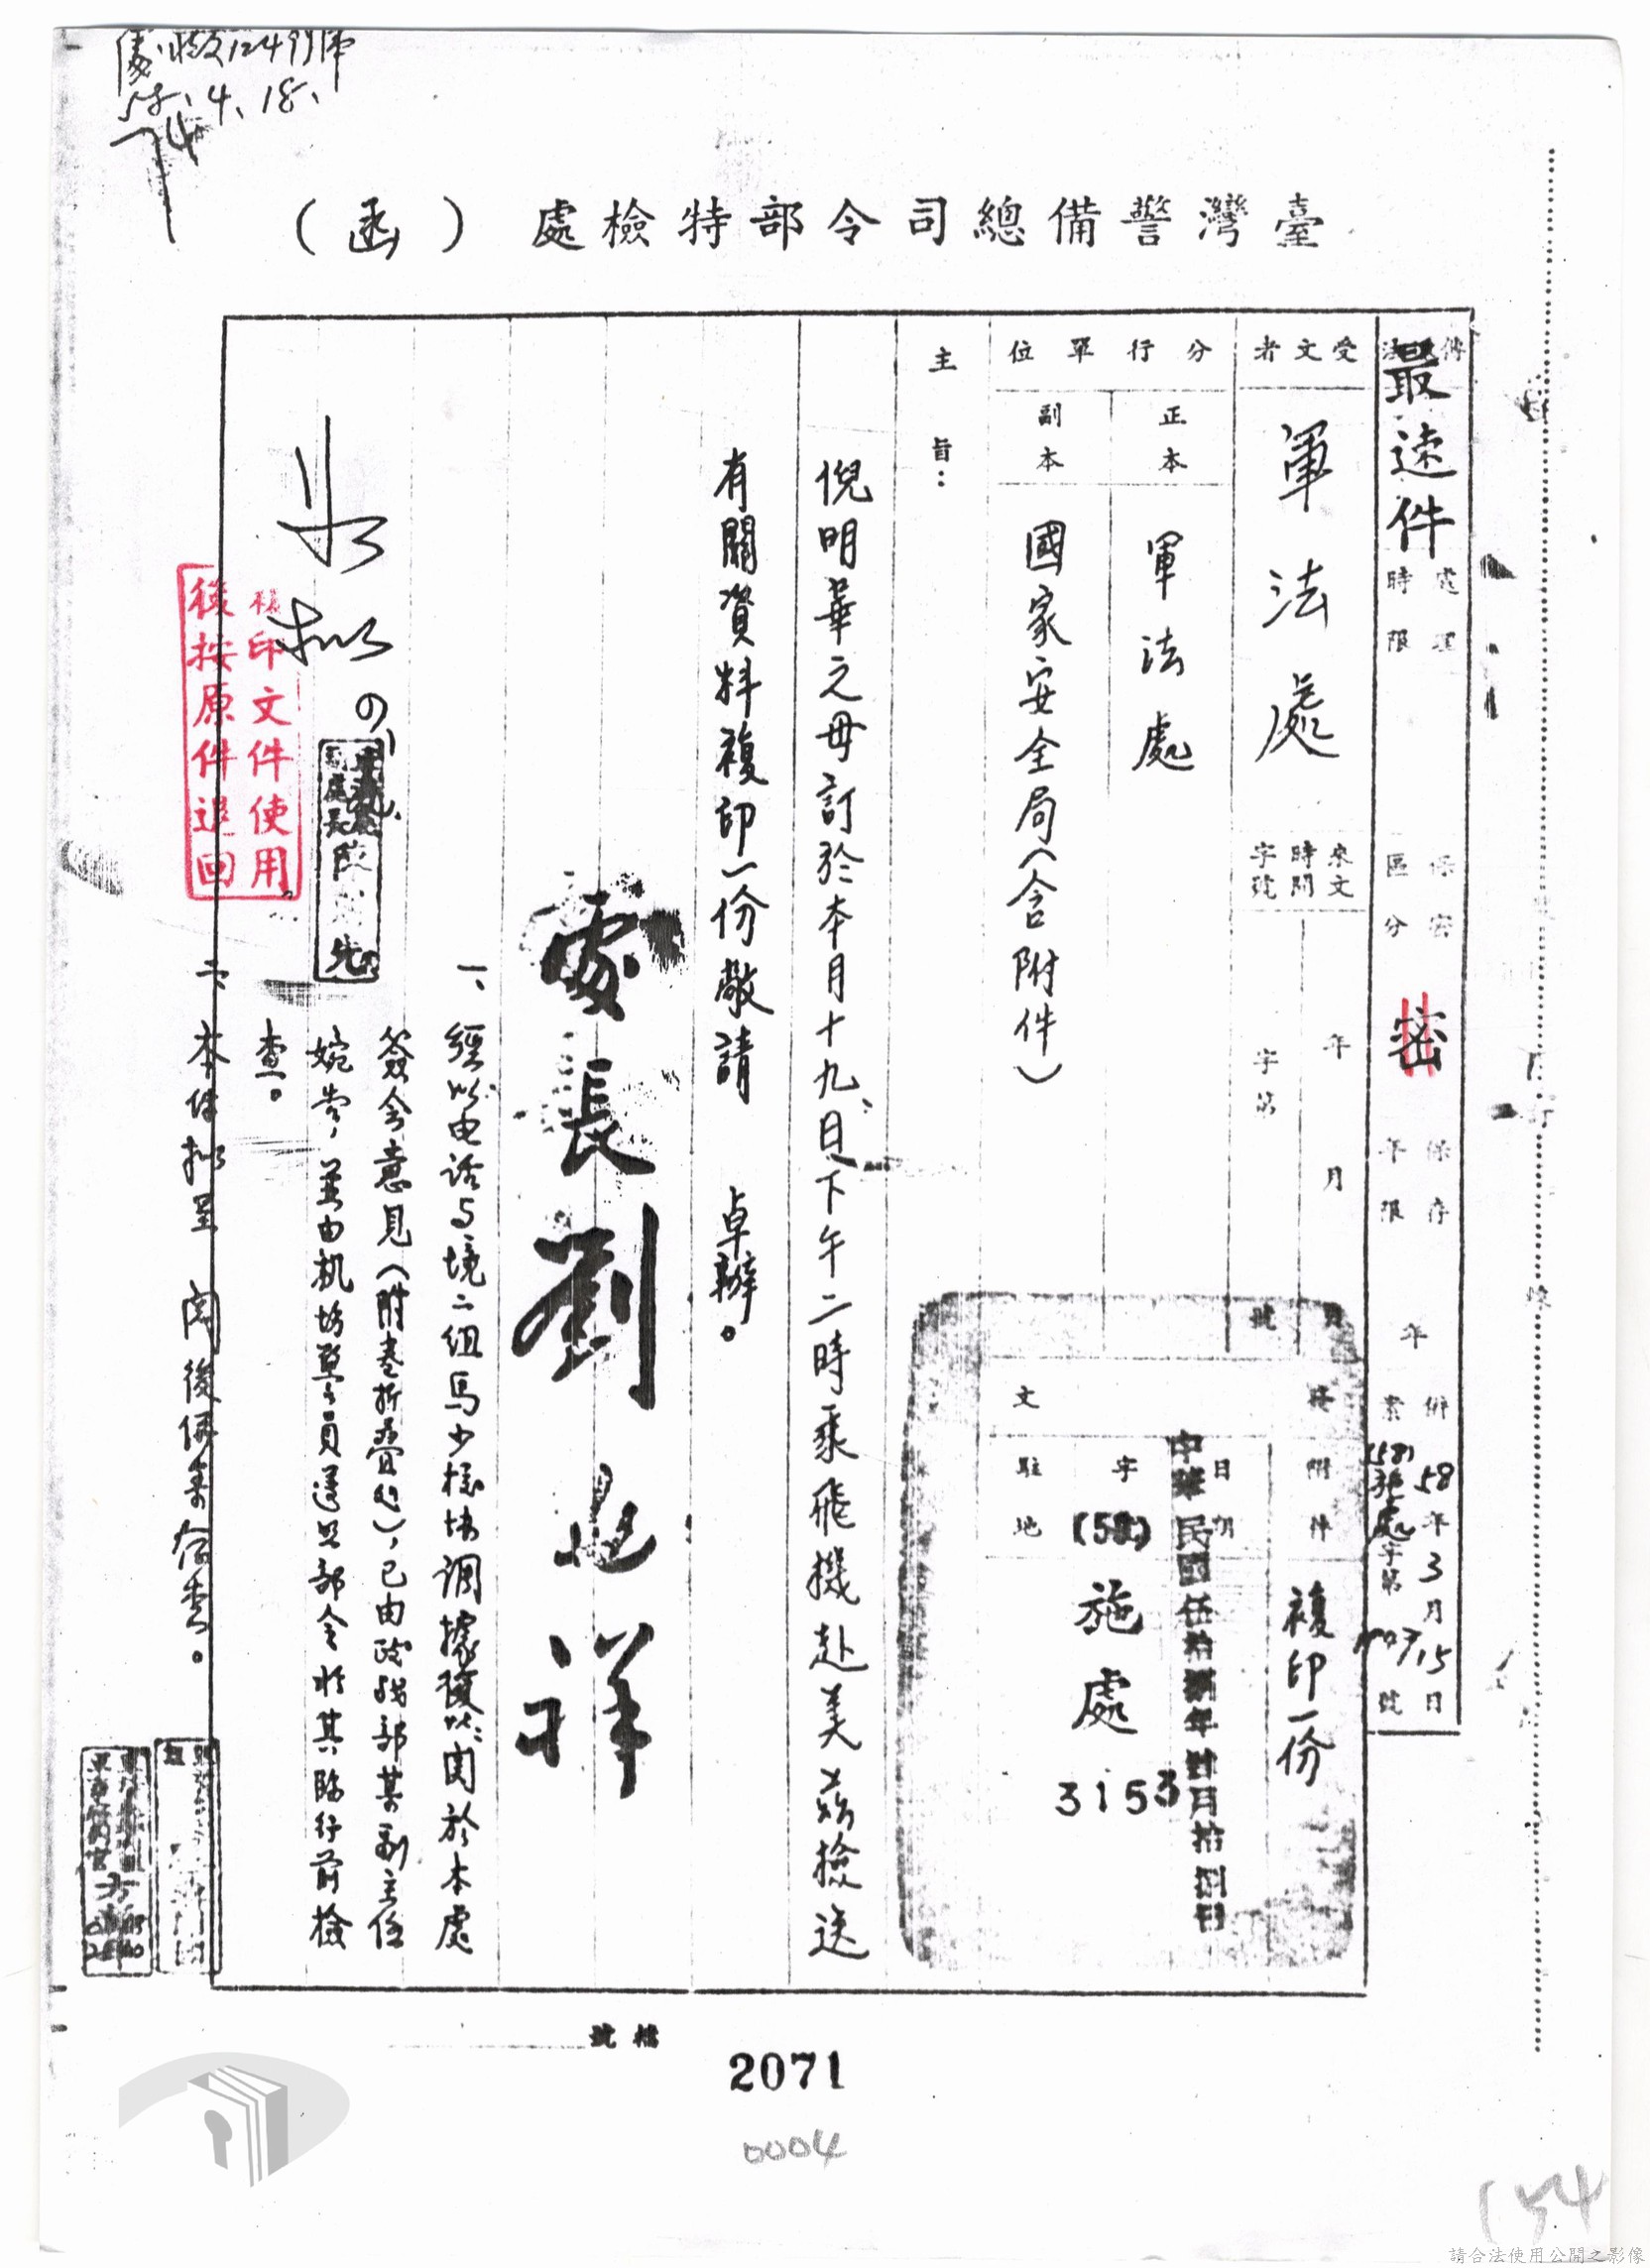 58.4.18.
臺灣警備總司令部特檢處（函）
最速件
處理時限
保密區分
密
保存年限
年
併案
58年3月15日
(58)施處字第
號
受文者
軍法處
來文時間字號
年月
字第
分行單位
正本
軍法處
副本
國家安全局（含附件）
附件
複印一份
日期
中華民國伍拾捌年肆月拾捌日
字
(58)施處3153
文
駐地
主旨：
倪明華之母訂於本月十九日下午二時乘飛機赴美茲檢送
有關資料複印一份敬請 卓辦。
處長劉兆祥
一、經以电話与境二組馬少校協調據復以关於本處
簽会意見（附卷折疊处），已由政战部某副主任
婉告，並由机場警員遵照部令於其臨行前檢
查。
二、本件擬呈 閱後併案存查。
如擬
印文件使用
後按原件退回
檔號
2071
0004
154
請合法使用公開之影像